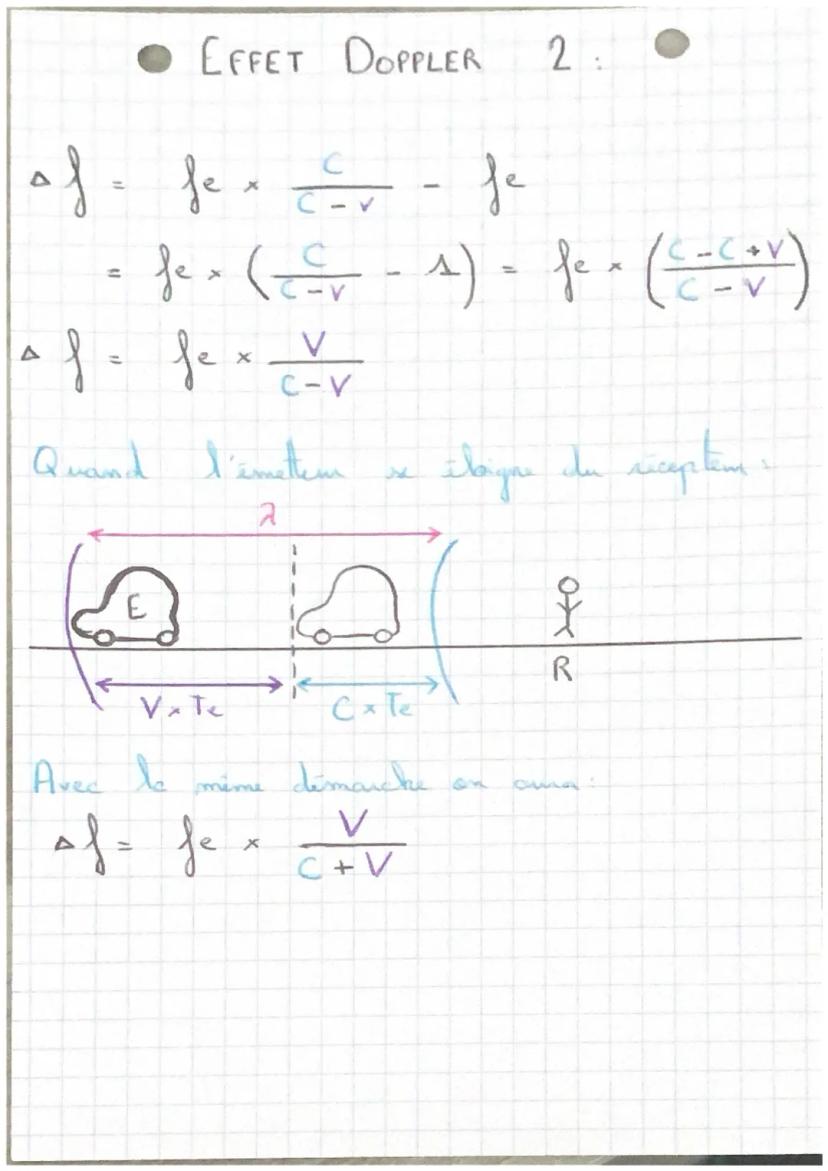 EFFET DOPPLER 2 :
Δf = fe × C / (C - V) - fe
= fe × (C / (C - V) - 1) = fe × ((C - C + V) / (C - V))
Δf = fe × V / (C - V)
Quand l'émetteur se éloigne du récepteur :
λ
E
R
V × Te C × Te
Avec la même démarche on aura :
Δf = fe × V / (C + V)